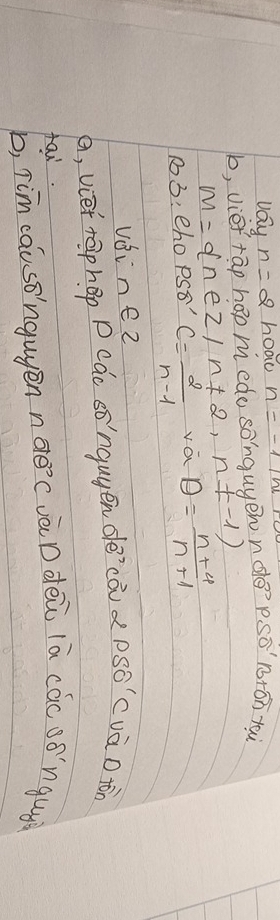 vậy n = 2 hoặc n = -1
b, viết tập hợp M các số nguyên n để psố B tồn tại
M = {n ∈ Z / n ≠ 2, n ≠ -1)
B3: cho psố C = 2/n-1 và D = n+4/n+1
với n ∈ Z
a, viết tập hợp P các số nguyên để cả 2 psố C và D tồn
tại.
b, Tìm các số nguyên n để C và D đều là các số nguyê